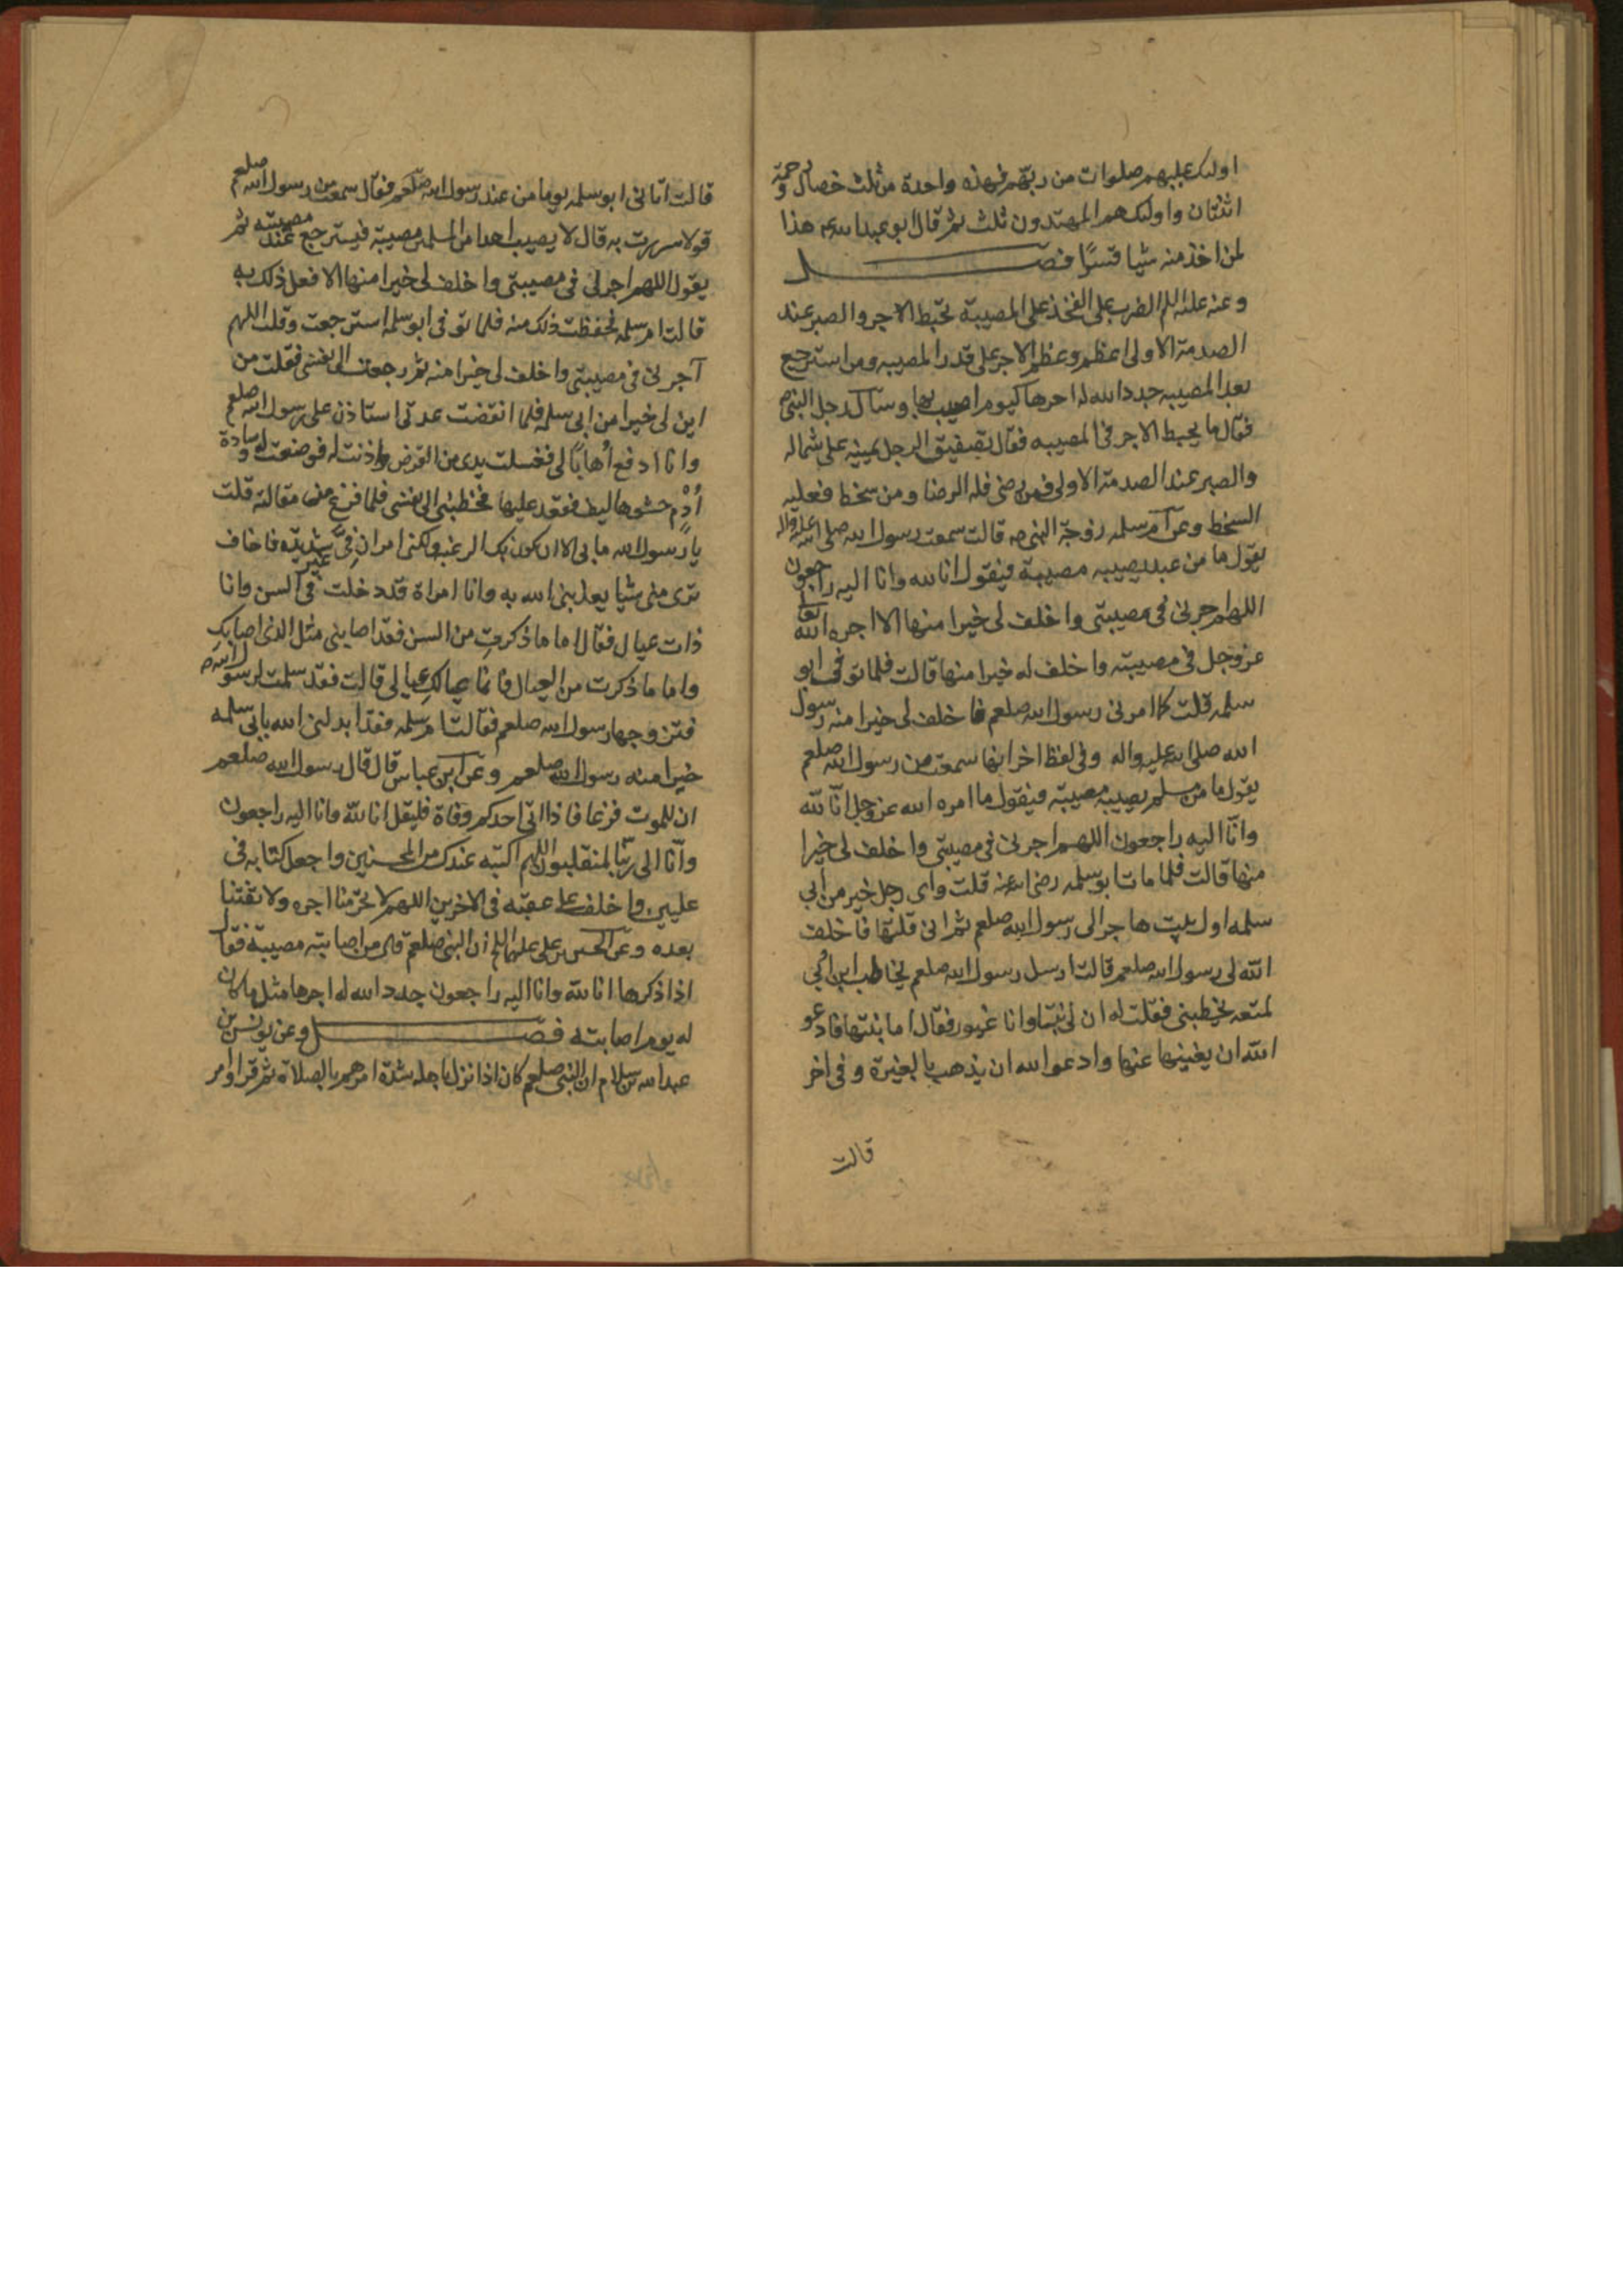 اولئك عليهم صلوات من ربهم فهذه واحدة من ثلث خصال ورحمة
اثنتان واولئك هم المهتدون ثلث ثم قال ابو عبد الله ع هذا
لمن اخذ منه شيا قسرًا فصل
وعنه عليه السلم الضرب على الفخذ على المصيبة تحبط الاجر والصبر عند
الصدمة الاولى اعظم وعظم الاجر على قدر المصيبه ومن استرجع
بعد المصيبه جدد الله له اجرها كيوم اصيب بها وسأل رجل النبى ص
فقال ما يحبط الاجر فى المصيبه فقال تصفيق الرجل يمينه على شماله
والصبر عند الصدمة الاولى فمن رضى فله الرضا ومن سخط فعليه
السخط وعن ام سلمه زوجة النبى ص قالت سمعت رسول الله صلى الله عليه واله
يقول ما من عبد يصيبه مصيبة فيقول انا لله وانا اليه راجعون
اللهم اجرنى فى مصيبتى واخلف لى خيرا منها الا اجره الله تعالى
عز وجل فى مصيبته واخلف له خيرا منها قالت فلما توفى ابو
سلمه قلت كما امرنى رسول الله صلعم فاخلف لى خيرا منه رسول
الله صلى الله عليه واله وفى لفظ اخر انها سمعت من رسول الله صلعم
يقول ما من مسلم يصيبه مصيبته فيقول ما امره الله عز وجل انّا لله
وانّا اليه راجعون اللهم اجرنى فى مصيبتى واخلف لى خيرا
منها قالت فلما مات ابو سلمه رضى الله عنه قلت واى رجل خير من ابي
سلمه اول بيت هاجر الى رسول الله صلعم ثم انى قلتها فاخلف
الله لى رسول الله صلعم قالت ارسل رسول الله صلعم بخاطب ابن ابي
بلتعه يخطبنى فقلت له ان لى بنتا وانا غيور فقال اما بنتها فادعو
الله ان يغنيها عنها وادعوا الله ان يذهب بالغيرة وفى اخر
قالت
قالت اتانى ابو سلمه يوما من عند رسول الله صلعم فقال سمعت من رسول الله صلعم
قولا سررت به قال لا يصيب احدا من المسلمين مصيبة فيسترجع عند مصيبته ثم
يقول اللهم اجرنى فى مصيبتى واخلف لى خيرا منها الا فعل ذلك به
قالت ام سلمه فحفظت ذلك منه فلما توفى ابو سلمه استرجعت وقلت اللهم
آجرنى فى مصيبتى واخلف لى خيرا منه ثم رجعت الى نفسى فقلت من
اين لى خيرا من ابى سلمه فلما انقضت عدتى استاذن على رسول الله صلعم
وانا ادفع أهابًا لى فغسلت يدى من القرض واذنت له فوضعت له وسادة
أدم حشوها ليف فقعد عليها فخطبنى الى نفسى فلما فرغ من مقالته قلت
يا رسول الله ما بى الا ان تكون بك الرغبه ولكنى امراة فىّ غيرة شديده فاخاف
ترى منى شيا يعذبنى الله به وانا امراة قد دخلت فى السن وانا
ذات عيال فقال اما ما ذكرتِ من السن فقد اصابنى مثل الذى اصابكِ
واما ما ذكرت من العيال فانما عيالكِ عيالى قالت فقد سلمت لرسول الله ص
فتزوجها رسول الله صلعم فقالت ام سلمه فقد ابدلنى الله بابى سلمه
خيرا منه رسول الله صلعم وعن ابن عباس قال قال رسول الله صلعم
ان للموت فزعا فاذا اتى احدكم وفاة فليقل انا لله وانا اليه راجعون
وانّا الى ربنا لمنقلبون اللهم اكتبه عندك من المحسنين واجعل كتابه فى
عليين واخلف على عقبه فى الاخرين اللهم لا تحرمنا اجره ولا تفتنا
بعده وعن الحسين بن على عليهما السلم ان النبى صلعم قال من اصابته مصيبة فقال
اذا ذكرها انا لله وانا اليه راجعون جدد الله له اجرها مثل ما كان
له يوم اصابته فصل وعن يوسف بن
عبد الله بن سلام ان النبى صلعم كان اذا نزل باهله شدة امرهم بالصلاة ثم قرا وامر